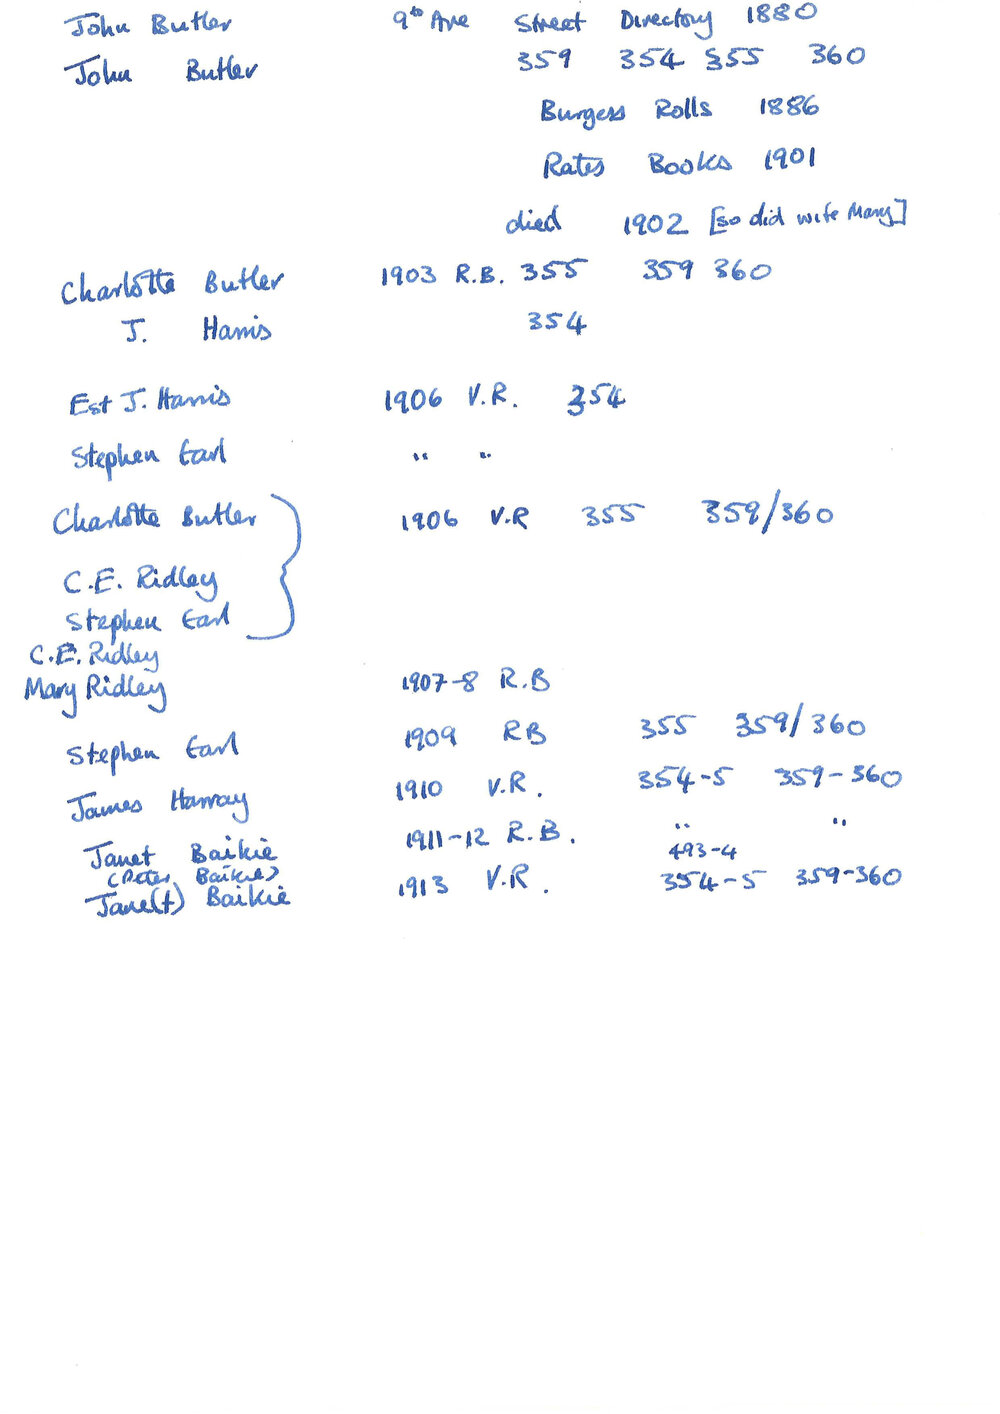 John Butler 9th Ave Street Directory 1880
John Butler 359 354 355 360
Burgess Rolls 1886
Rates Books 1901
died 1902 [so did wife Mary]
Charlotte Butler 1903 R.B. 355 359 360
J. Harris 354
Est J. Harris 1906 V.R. 354
Stephen Earl " "
Charlotte Butler 1906 V.R 355 359/360
C.E. Ridley
Stephen Earl
C.E. Ridley
Mary Ridley 1907-8 R.B
Stephen Earl 1909 RB 355 359/360
James Harray 1910 V.R. 354-5 359-360
Janet Baikie 1911-12 R.B. " "
(Peter Baikie) 493-4
Jane(t) Baikie 1913 V.R. 354-5 359-360